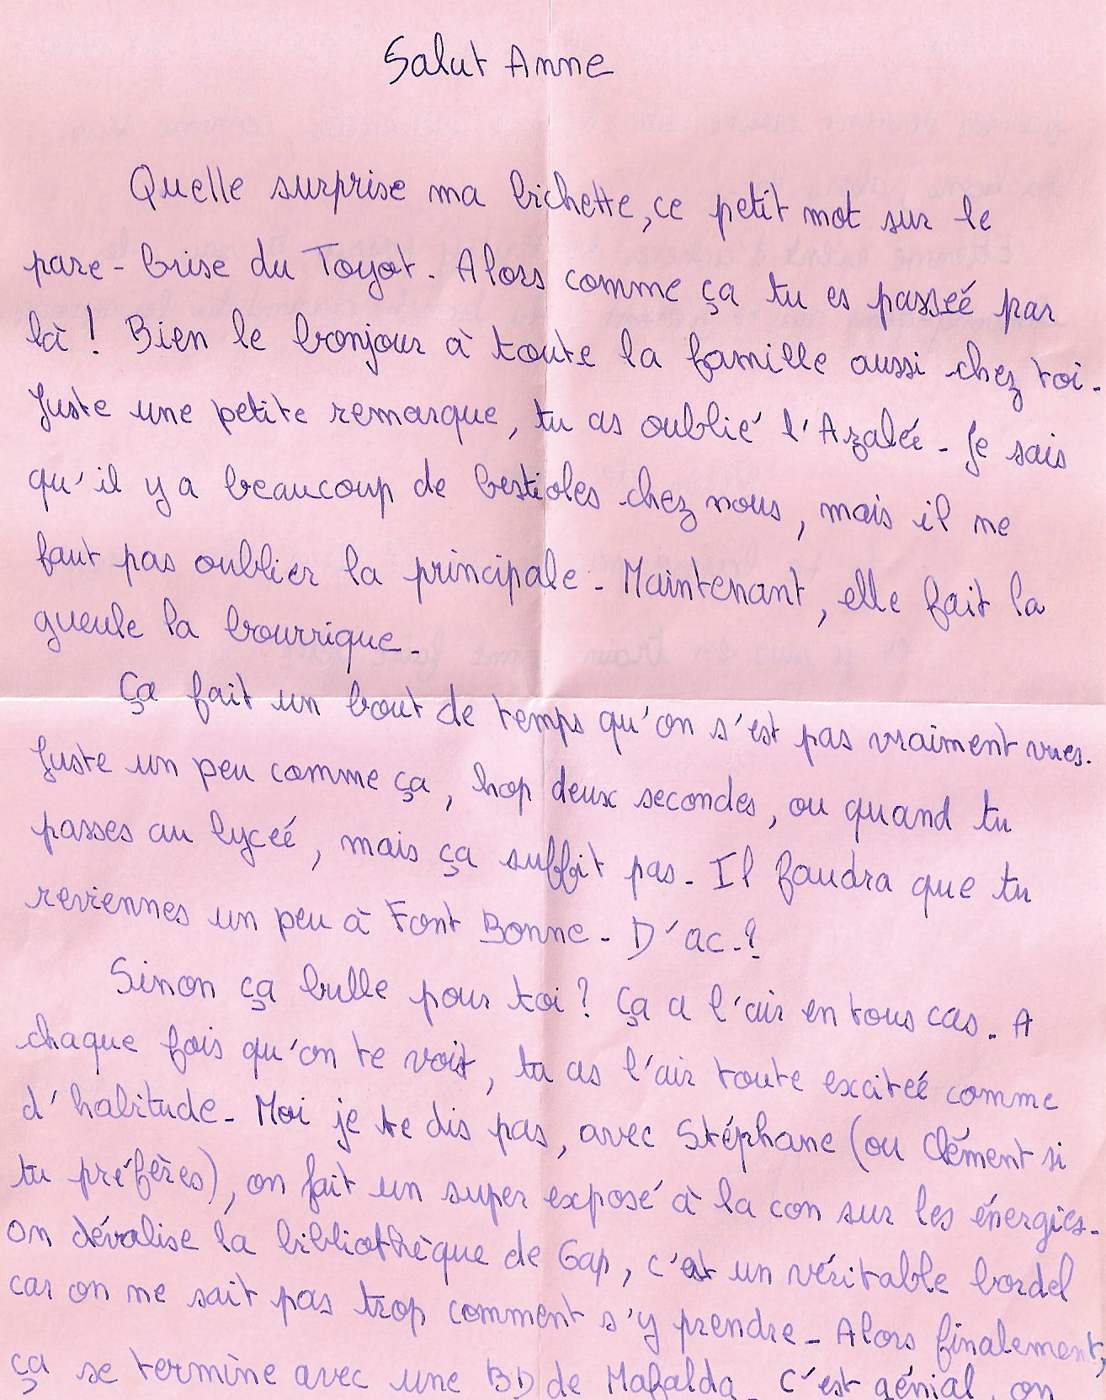 Salut Anne
Quelle surprise ma bichette, ce petit mot sur le
pare-brise du Toyot. Alors comme ça tu es passée par
là ! Bien le bonjour à toute la famille aussi chez toi.
Juste une petite remarque, tu as oublié l'Azalée. Je sais
qu'il y a beaucoup de bestioles chez nous, mais il ne
faut pas oublier la principale. Maintenant, elle fait la
gueule la bourrique.
Ça fait un bout de temps qu'on s'est pas vraiment vues.
Juste un peu comme ça, hop deux secondes, ou quand tu
passes au lycée, mais ça suffit pas. Il faudra que tu
reviennes un peu à Font Bonne. D'ac.?
Sinon ça bulle pour toi ? Ça a l'air en tous cas. A
chaque fois qu'on te voit, tu as l'air toute excitée comme
d'habitude. Moi je te dis pas, avec Stéphane (ou Clément si
tu préfères), on fait un super exposé à la con sur les énergies.
On dévalise la bibliothèque de Gap, c'est un véritable bordel
car on ne sait pas trop comment s'y prendre. Alors finalement,
ça se termine avec une BD de Mafalda. C'est génial, on